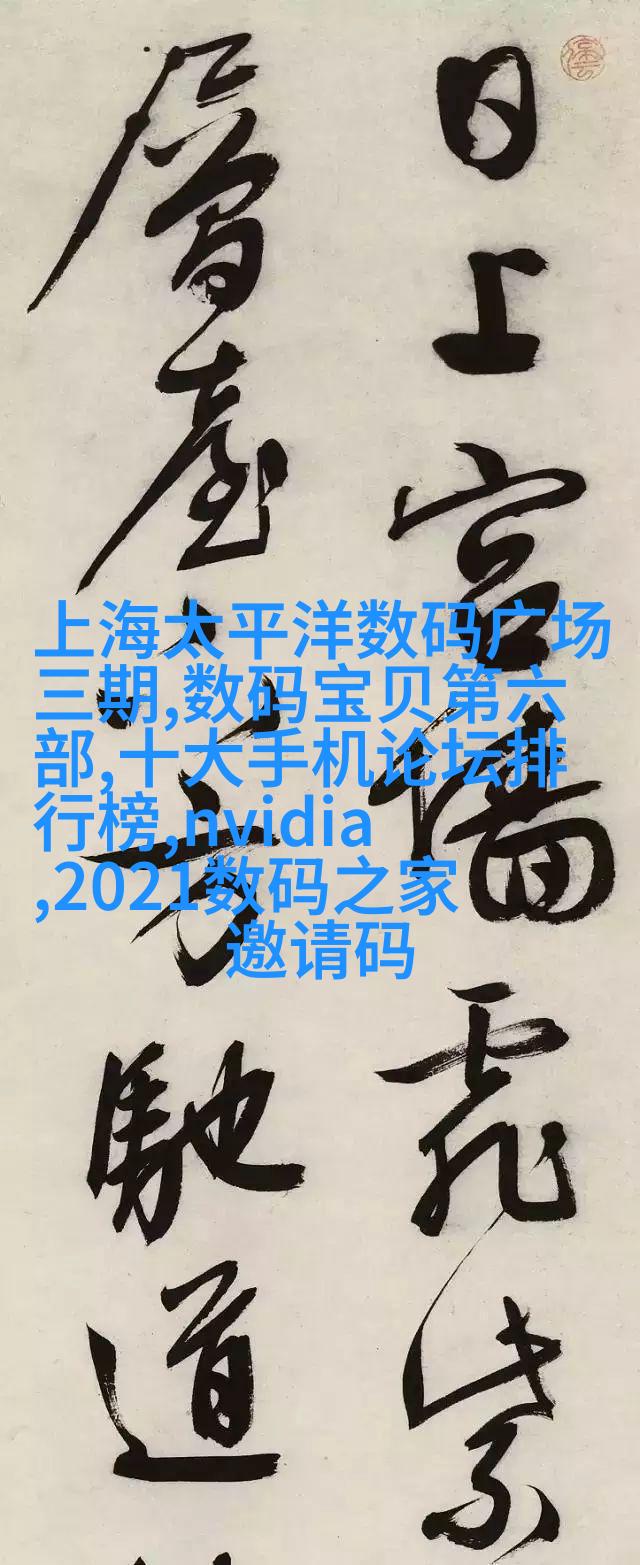 日上宮墻霏紫
層臺下方馳道
上海太平洋数码广场
三期,数码宝贝第六
部,十大手机论坛排
行榜,nvidia
,2021数码之家
邀请码